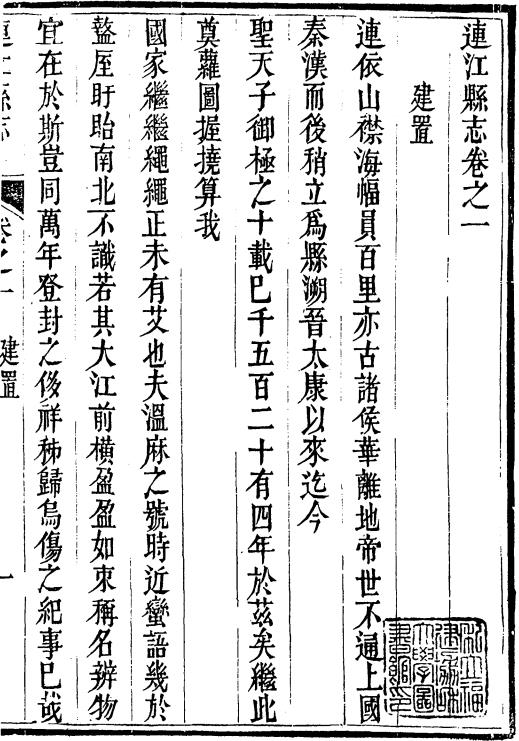 連江縣志卷之一
建置
連依山襟海幅員百里亦古諸侯華離地帝世不通上國
秦漢而後稍立爲縣溯晉太康以來迄今
聖天子御極之十載巳千五百二十有四年於茲矣繼此
奠蘿圖握撓算我
國家繼繼繩繩正未有艾也夫溫麻之號時近蠻語幾於
盩厔盱眙南北不識若其大江前橫盈盈如束稱名辨物
宜在於斯豈同萬年登封之侈祥秭歸烏傷之紀事巳哉
連江縣志
卷之一
建置
一
私立福
建協和
大學圖
書館印